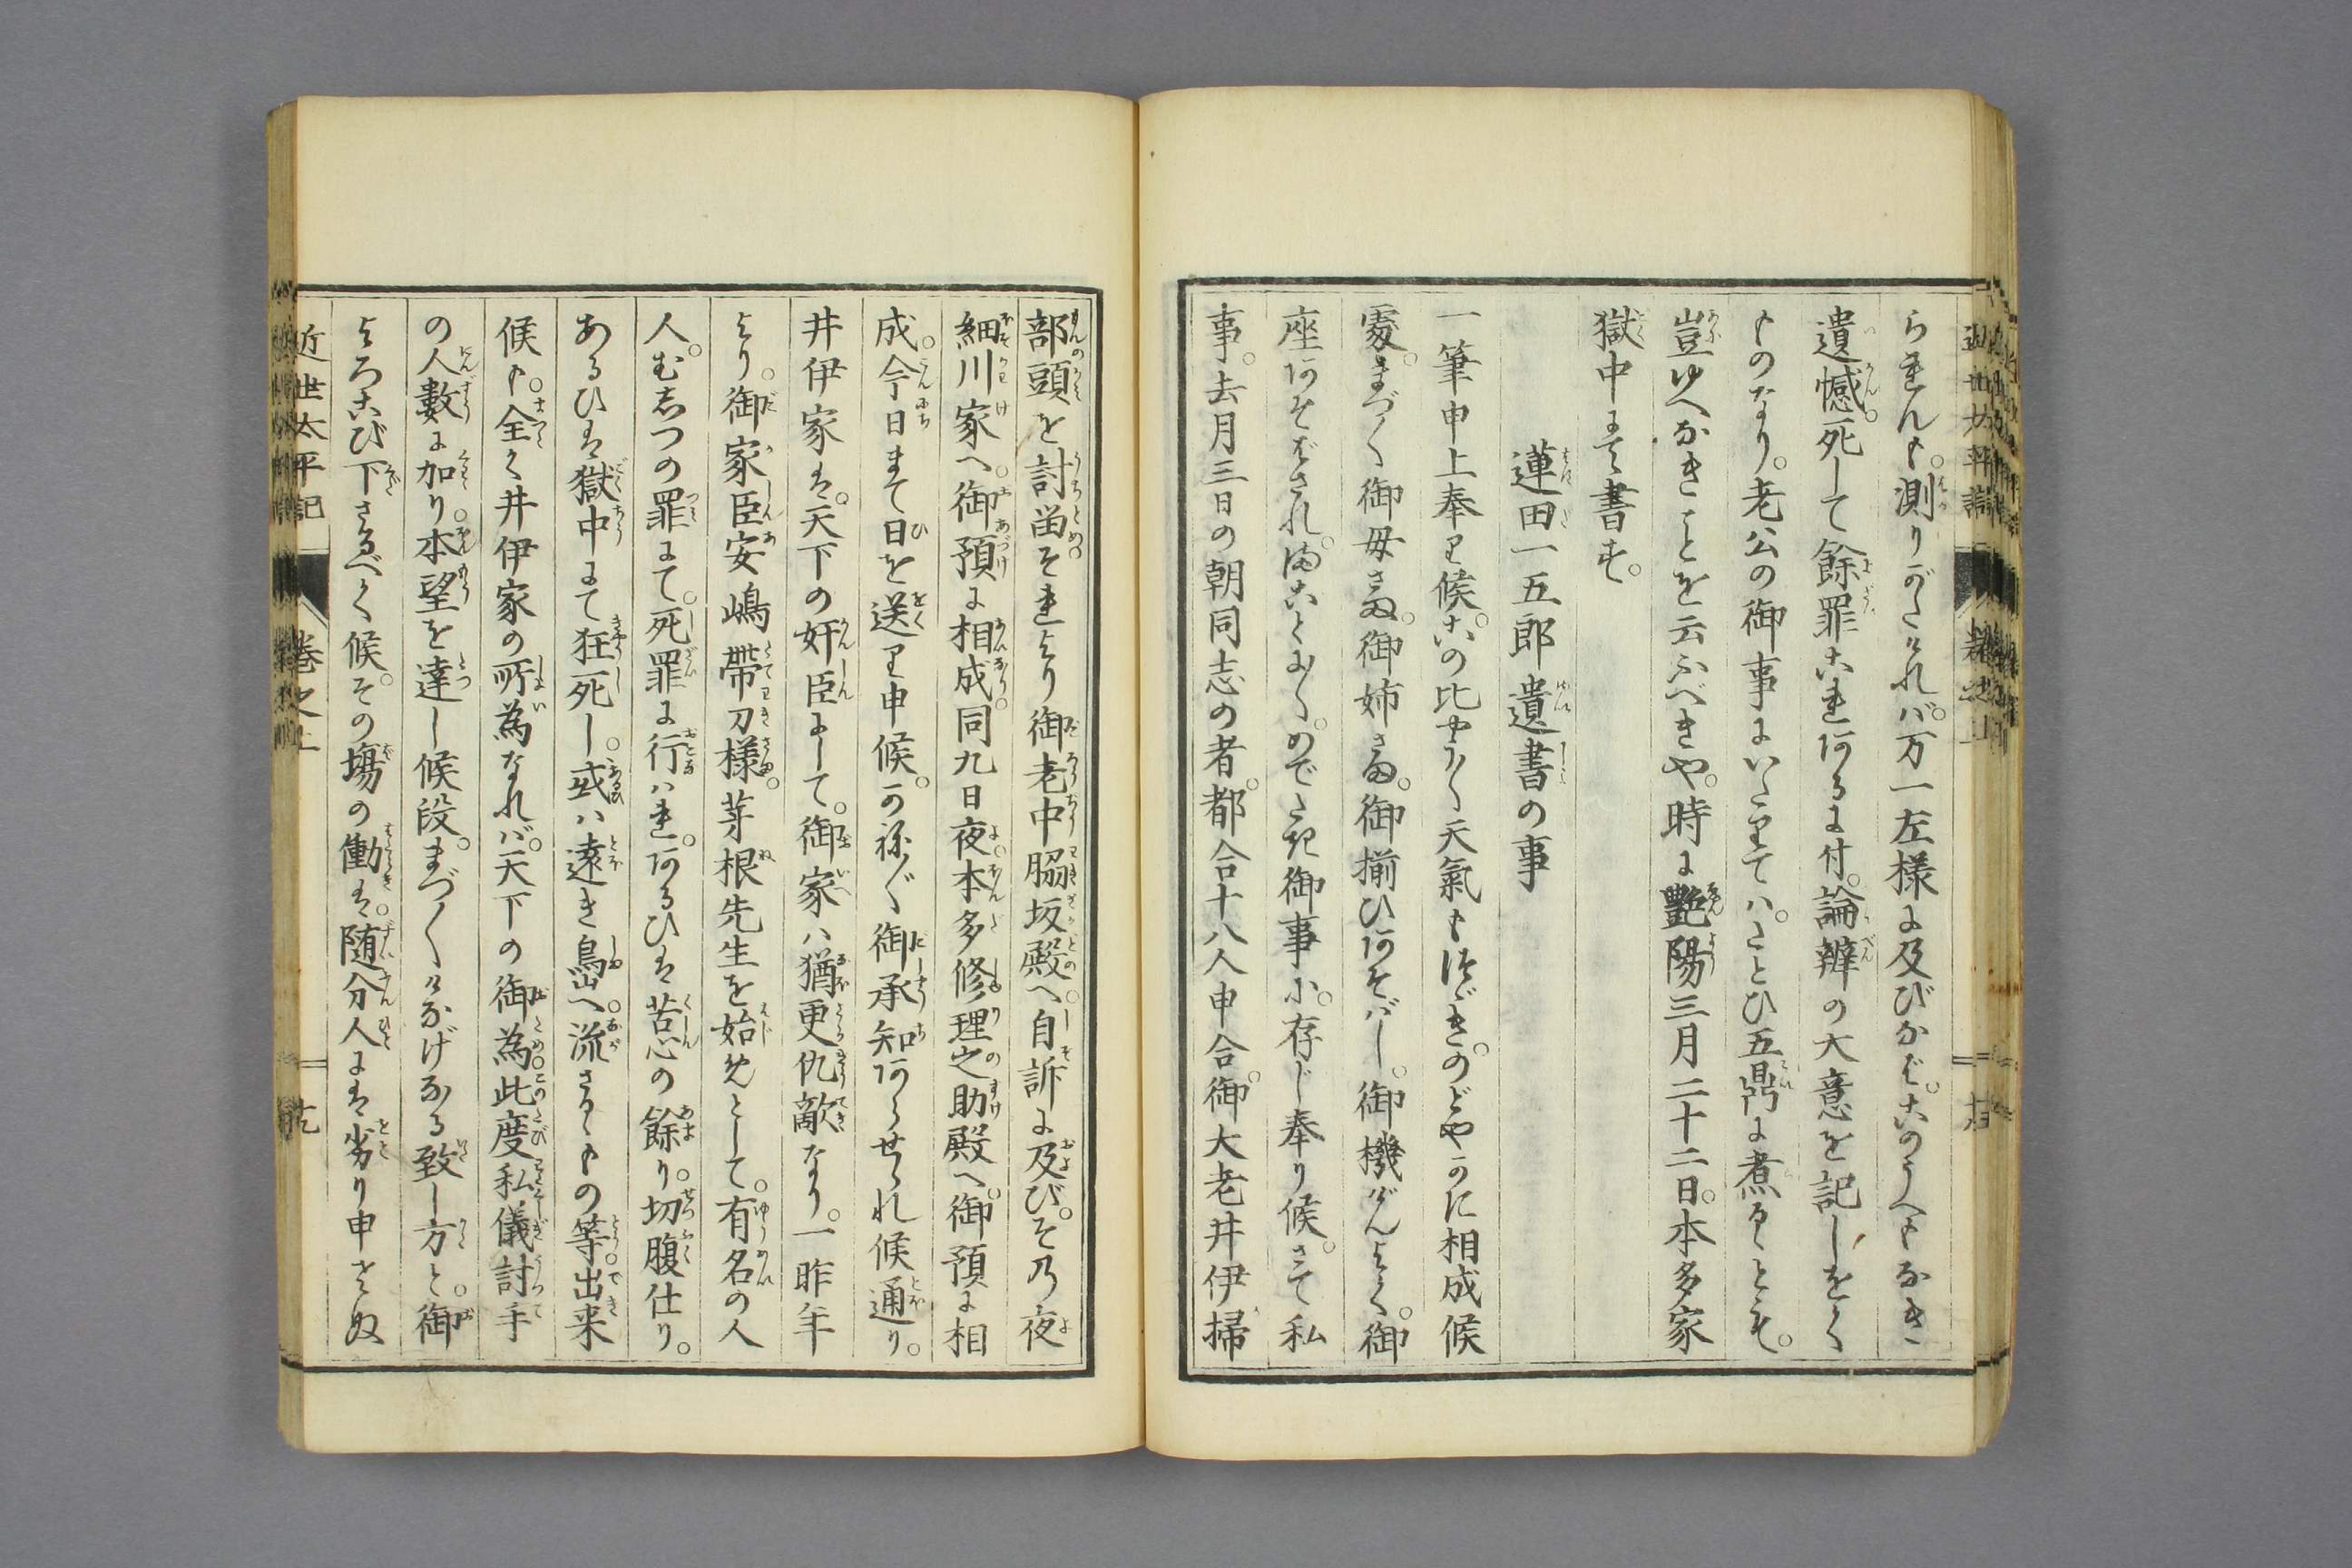 られんも。測りがたけれバ。万一左様に及びなば。このうへもなき
遺憾。死して餘罪これあるに付。論辨の大意を記しをく
ものなり。老公の御事にいたりてハ。たとひ五鼎に煮るゝとも。
豈ゆへなきことを云ふべきや。時に艶陽三月二十二日。本多家
獄中にて書す。
蓮田一五郎遺書の事
一筆申上奉り候。この比やう〱天氣もつゞき。のどやかに相成候
處。まづ〱御母さま。御姉さま。御揃ひあそバし。御機げんよく。御
座あそばされ。まことに〱。めでたき御事に。存じ奉り候。さて私
事。去月三日の朝同志の者。都合十八人申合。御大老井伊掃
部頭を討畄。それより御老中脇坂殿へ。自訴に及び。その夜
細川家へ。御預に相成。同九日夜。本多修理之助殿へ。御預に相
成。今日まて日を送り申候。かね〲御承知あらせられ候通り。
井伊家は。天下の奸臣にして。御家ハ猶更仇敵なり。一昨年
より。御家臣安嶋帶刀様。茅根先生を始めとして。有名の人
人。むじつの罪にて。死罪に行ハれ。あるひは苦心の餘り。切腹仕り。
あるひは獄中にて狂死し。或ハ遠き嶌へ。流さるゝもの等。出来
候も。全く井伊家の所為なれバ。天下の御為。此度私儀討手
の人數に加り。本望を達し候段。まづ〱けなげなる致し方と。御
よろこび下さるべく候。その塲の働は。随分人には劣り申さぬ
近世太平記
巻之上